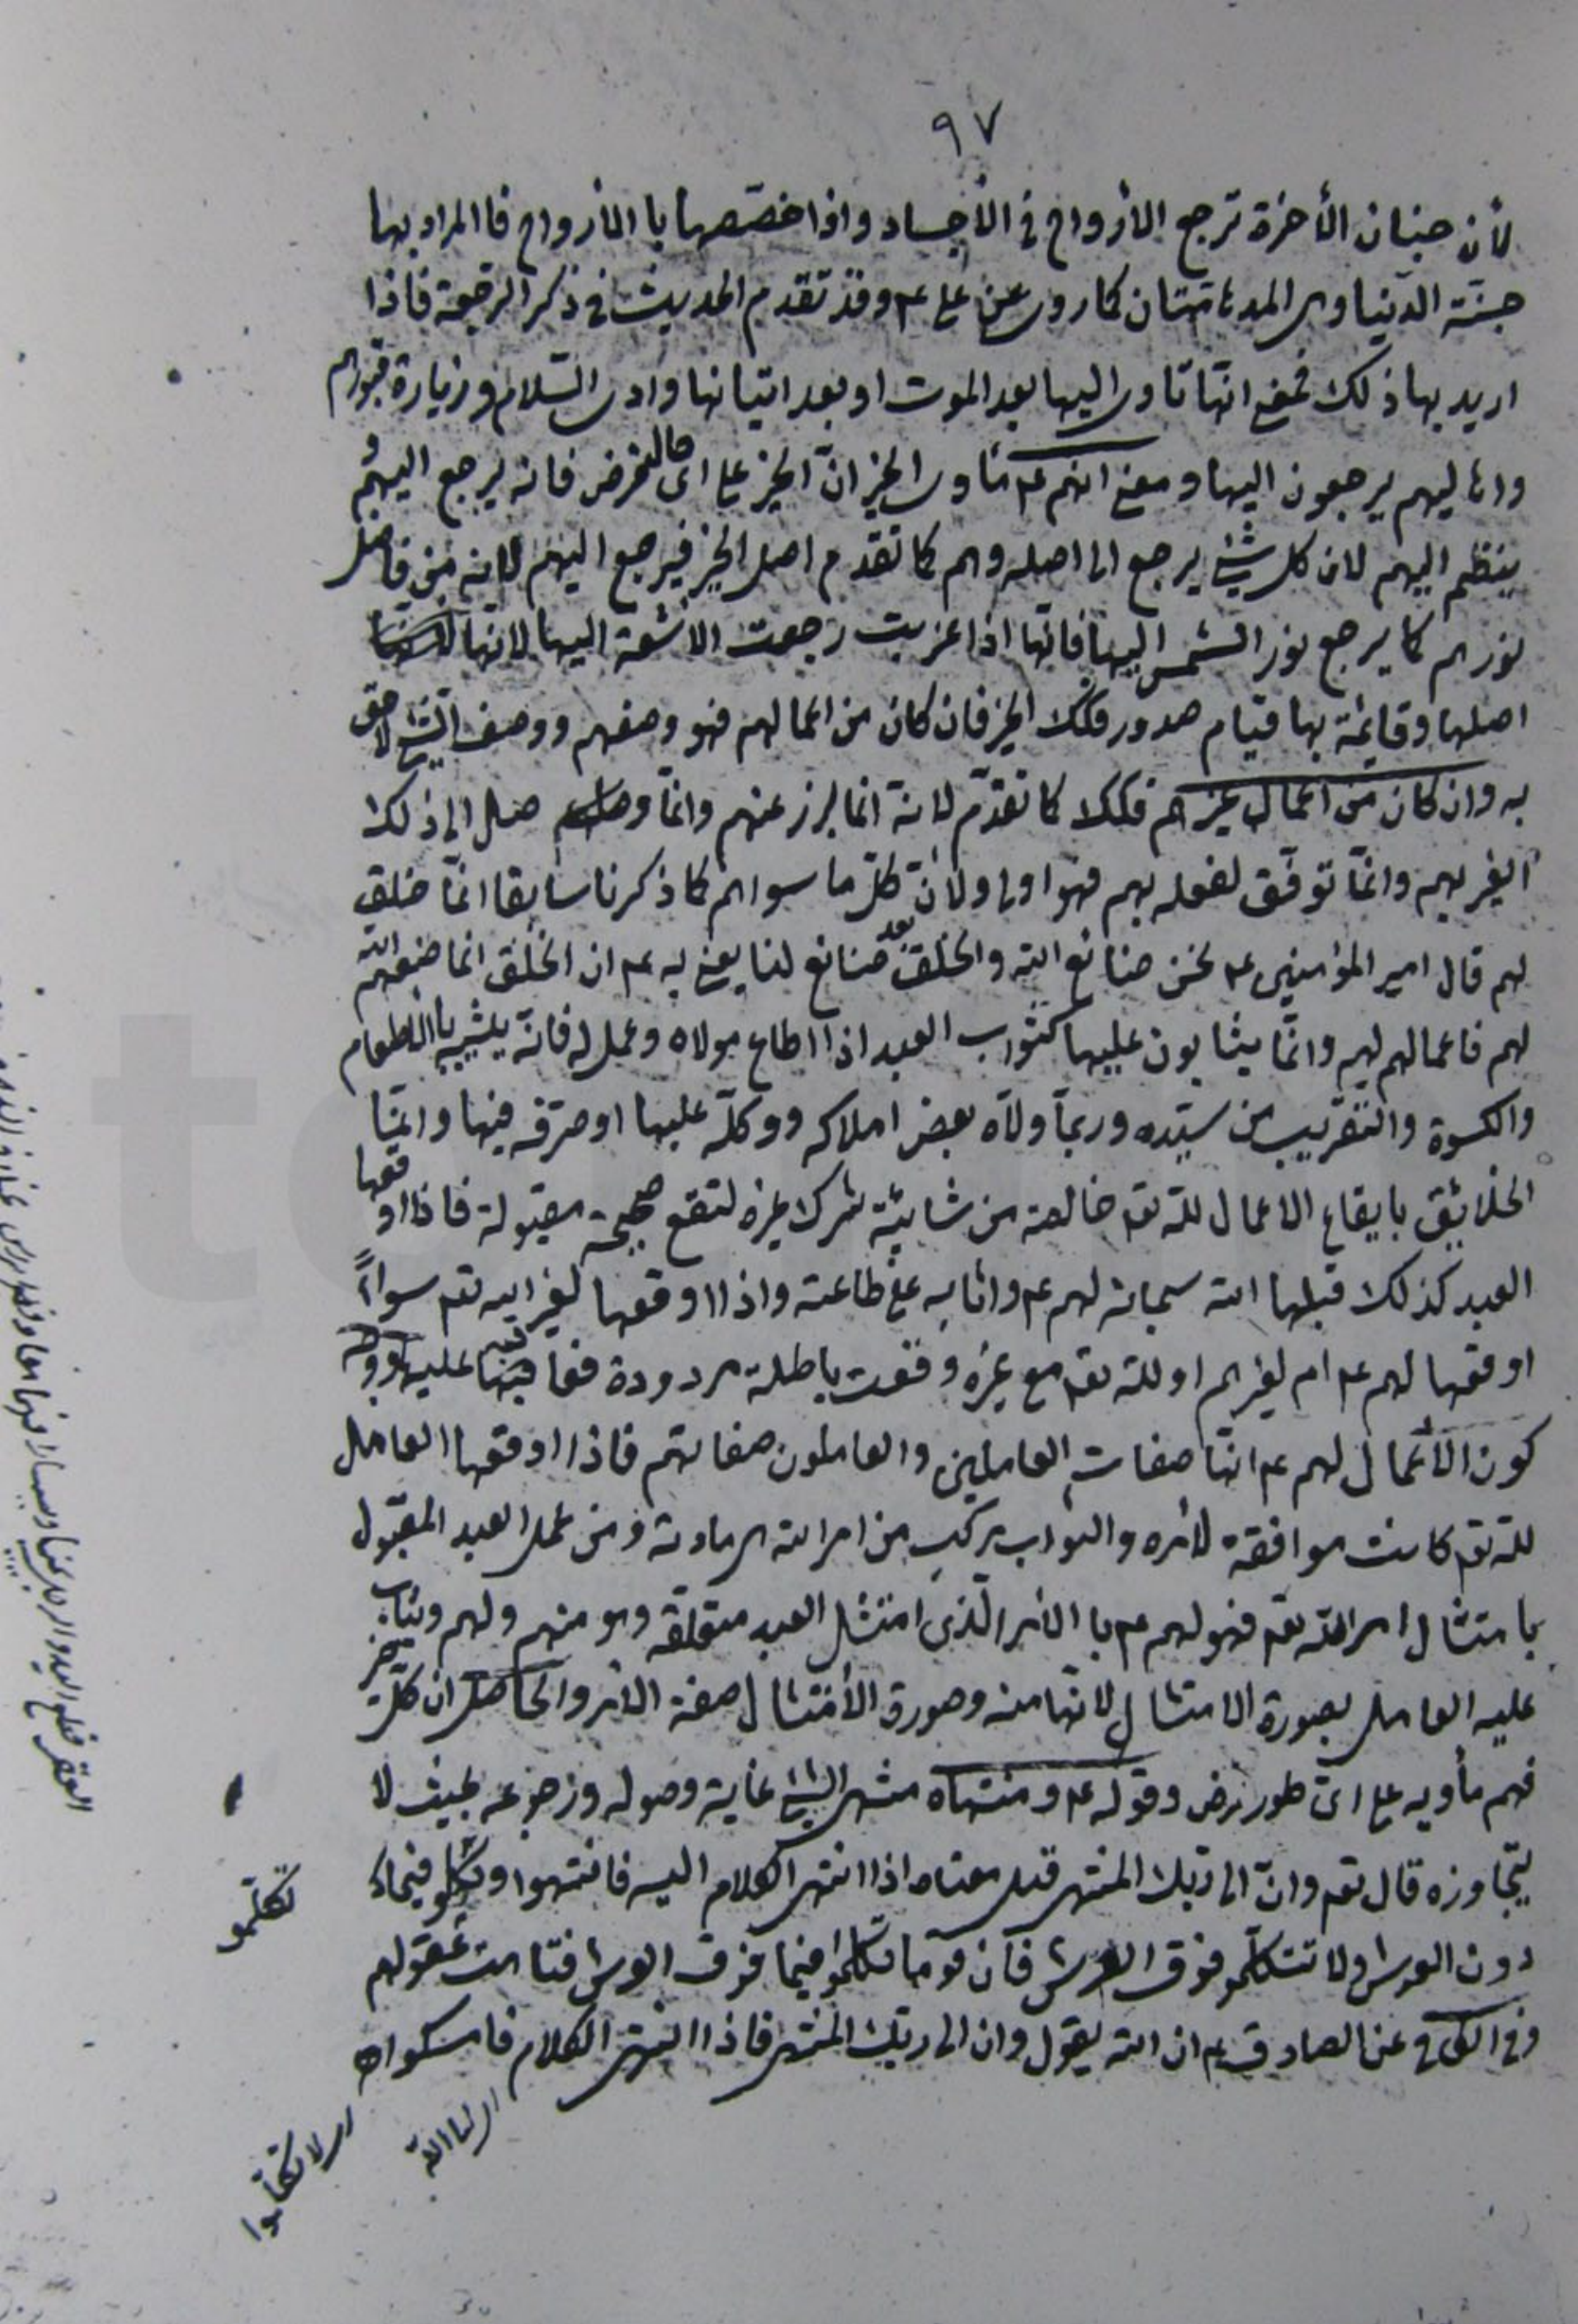 ٩٧
لأن جنان الأخرة ترجع الأرواح فى الأجساد واذا خصصها با الأرواح فا المراد بها
جنّة الدّنيا وهى المدهامتان كما روى عن على ع وقد تقدم الحديث فى ذكر الرجعة فاذا
اريد بها ذلك فمعنى انها تاوى اليها بعد الموت او بعد اتيانها وادى السّلام وزيارة قبورهم
واهاليهم يرجعون اليها ومعنى انهم ع مأوى الخير انّ الخير على اى حال فرض فانه يرجع اليهم و
ينظم اليهم لان كل شئ يرجع الى اصله وهم كما تقدم اصل الخير فيرجع اليهم لانه من فاضل
نورهم كما يرجع نور الشمس اليها فانها اذا غربت رجعت الاشعة اليها لانها
اصلها وقائمة بها قيام صدور فكك الخير فان كان من اعمالهم فهو وصفهم ووصف الشئ لاحق
به وان كان من اعمال غيرهم فكك كما تقدّم لانه انما برز عنهم وانما وصل الى ذلك
الغير بهم وانّما توفّق لفعله بهم فهو اولى ولانّ كلّ ما سواهم كما ذكرنا سابقا انّما خلق
لهم قال امير المؤمنين ع نحن صنائع الله والخلق بعد صنائع لنا يعنى به ع ان الخلق انما صنعهم الله
لهم فاعمالهم لهم وانّما يثابون عليها كثواب العبد اذا اطاع مولاه وعمل له فانّه يثيبه با الطعام
والكسوة والتقريب من سيّده وربّما ولّاه بعض املاكه ووكلّه عليها او صرّفه فيها وانما
الخلائق بايقاع الاعمال لله تع خالصة من شائبة شرك غيره لتقع صحيحة مقبولة فاذا اوقعها
العبد كذلك قبلها الله سبحانه لهم ع واثابه على طاعته واذا اوقعها لغير الله تع سواءً
اوقعها لهم ع ام لغيرهم او لله تع مع غيره وقعت باطلة مردودة فعاقبته عليها ووجه
كون الأعمال لهم ع انّها صفات العاملين والعاملون صفاتهم فاذا اوقعها العامل
لله تع كانت موافقة لأمره والثواب مركب من امر الله هى مادته ومن عمل العبد المقبول
بامتثال امر الله تع فهو لهم ع با الأمر الّذى امتثل العبد متعلقه وهو منهم ولهم ويثاب
عليه العامل بصورة الامتثال لانّها منه وصورة الأمتثال صفة الأمر والحاصل ان كلّ خير
فهم مأويه على اىّ طور فرض وقوله ع ومنتهاه منتهى الشئ غاية وصوله ورجوعه بحيث لا
يتجاوزه قال تع وانّ الى ربّك المنتهى قيل معناه اذا انتهى الكلام اليه فانتهوا وتكلمو فيما
دون العرش ولا تتكلّمو فوق العرش فان قوما تكلموا فيما فوق العرش فتاهت عقولهم
وفى الكافى عن الصادق ع ان الله يقول وان الى ربك المنتهى فاذا انتهى الكلام فامسكواه
تكلمو